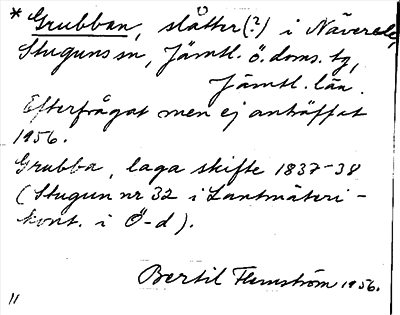 * Grubban, slåtter(?) i Näverede,
Stuguns sn, Jämtl. ö. doms. tg,
Jämtl. län.
Efterfrågat men ej anträffat
1956.
Grubba, laga skifte 1837-38
(Stugun nr 32 i Lantmäteri-
kont. i Ö-d).
Bertil Flemström 1956.
11